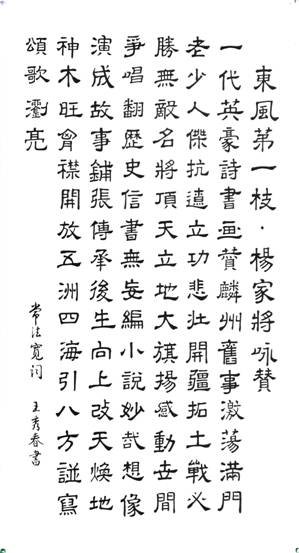 東風第一枝·楊家將咏贊
一代英豪詩書画贊麟州舊事激蕩滿門
老少人傑抗遼立功悲壯開疆拓土戰必
勝無敵名將頂天立地大旗揚感動世間
爭唱翻歷史信書無妄編小說妙哉想像
演成故事鋪張傳承後生向上改天煥地
神木旺胷襟開放五洲四海引八方諩寫
頌歌瀏亮
常法寬詞 王秀春書